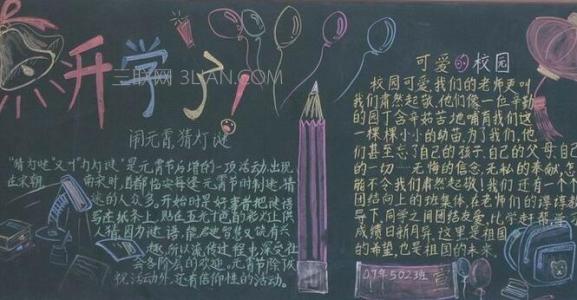 开学了!
三联网 3LIAN.COM
闹元宵,猜灯谜
"猜灯谜"又叫"打灯谜"是元宵节后增的一项活动,出现
在宋朝。南宋时,首都临安每逢元宵节时制迷,猜
谜的人众多。开始时是好事者把谜语
写在纸条上,贴在五光十色的彩灯上供
人猜。因为谜语能启迪智慧又饶有兴
趣,所以流传过程中深受社
会各阶层的欢迎。元宵节除庆
祝活动外,还有信仰性的活动。
可爱的校园
校园可爱,我们的老师更叫
我们肃然起敬。他们像一位辛勤
的园丁含辛茹苦地哺育我们这
一棵棵小小的幼苗,为了我们,他
们甚至忘了自己的孩子、自己的父母、自己
的一切——无悔的信念,无私的奉献,怎
能不令我们肃然起敬!我们还有一个
团结向上的班集体,在老师们的谆谆教
导下,同学之间团结友爱、比学赶帮
成绩日新月异,这里是祖国
的希望,也是祖国的未来。
07年502班宣